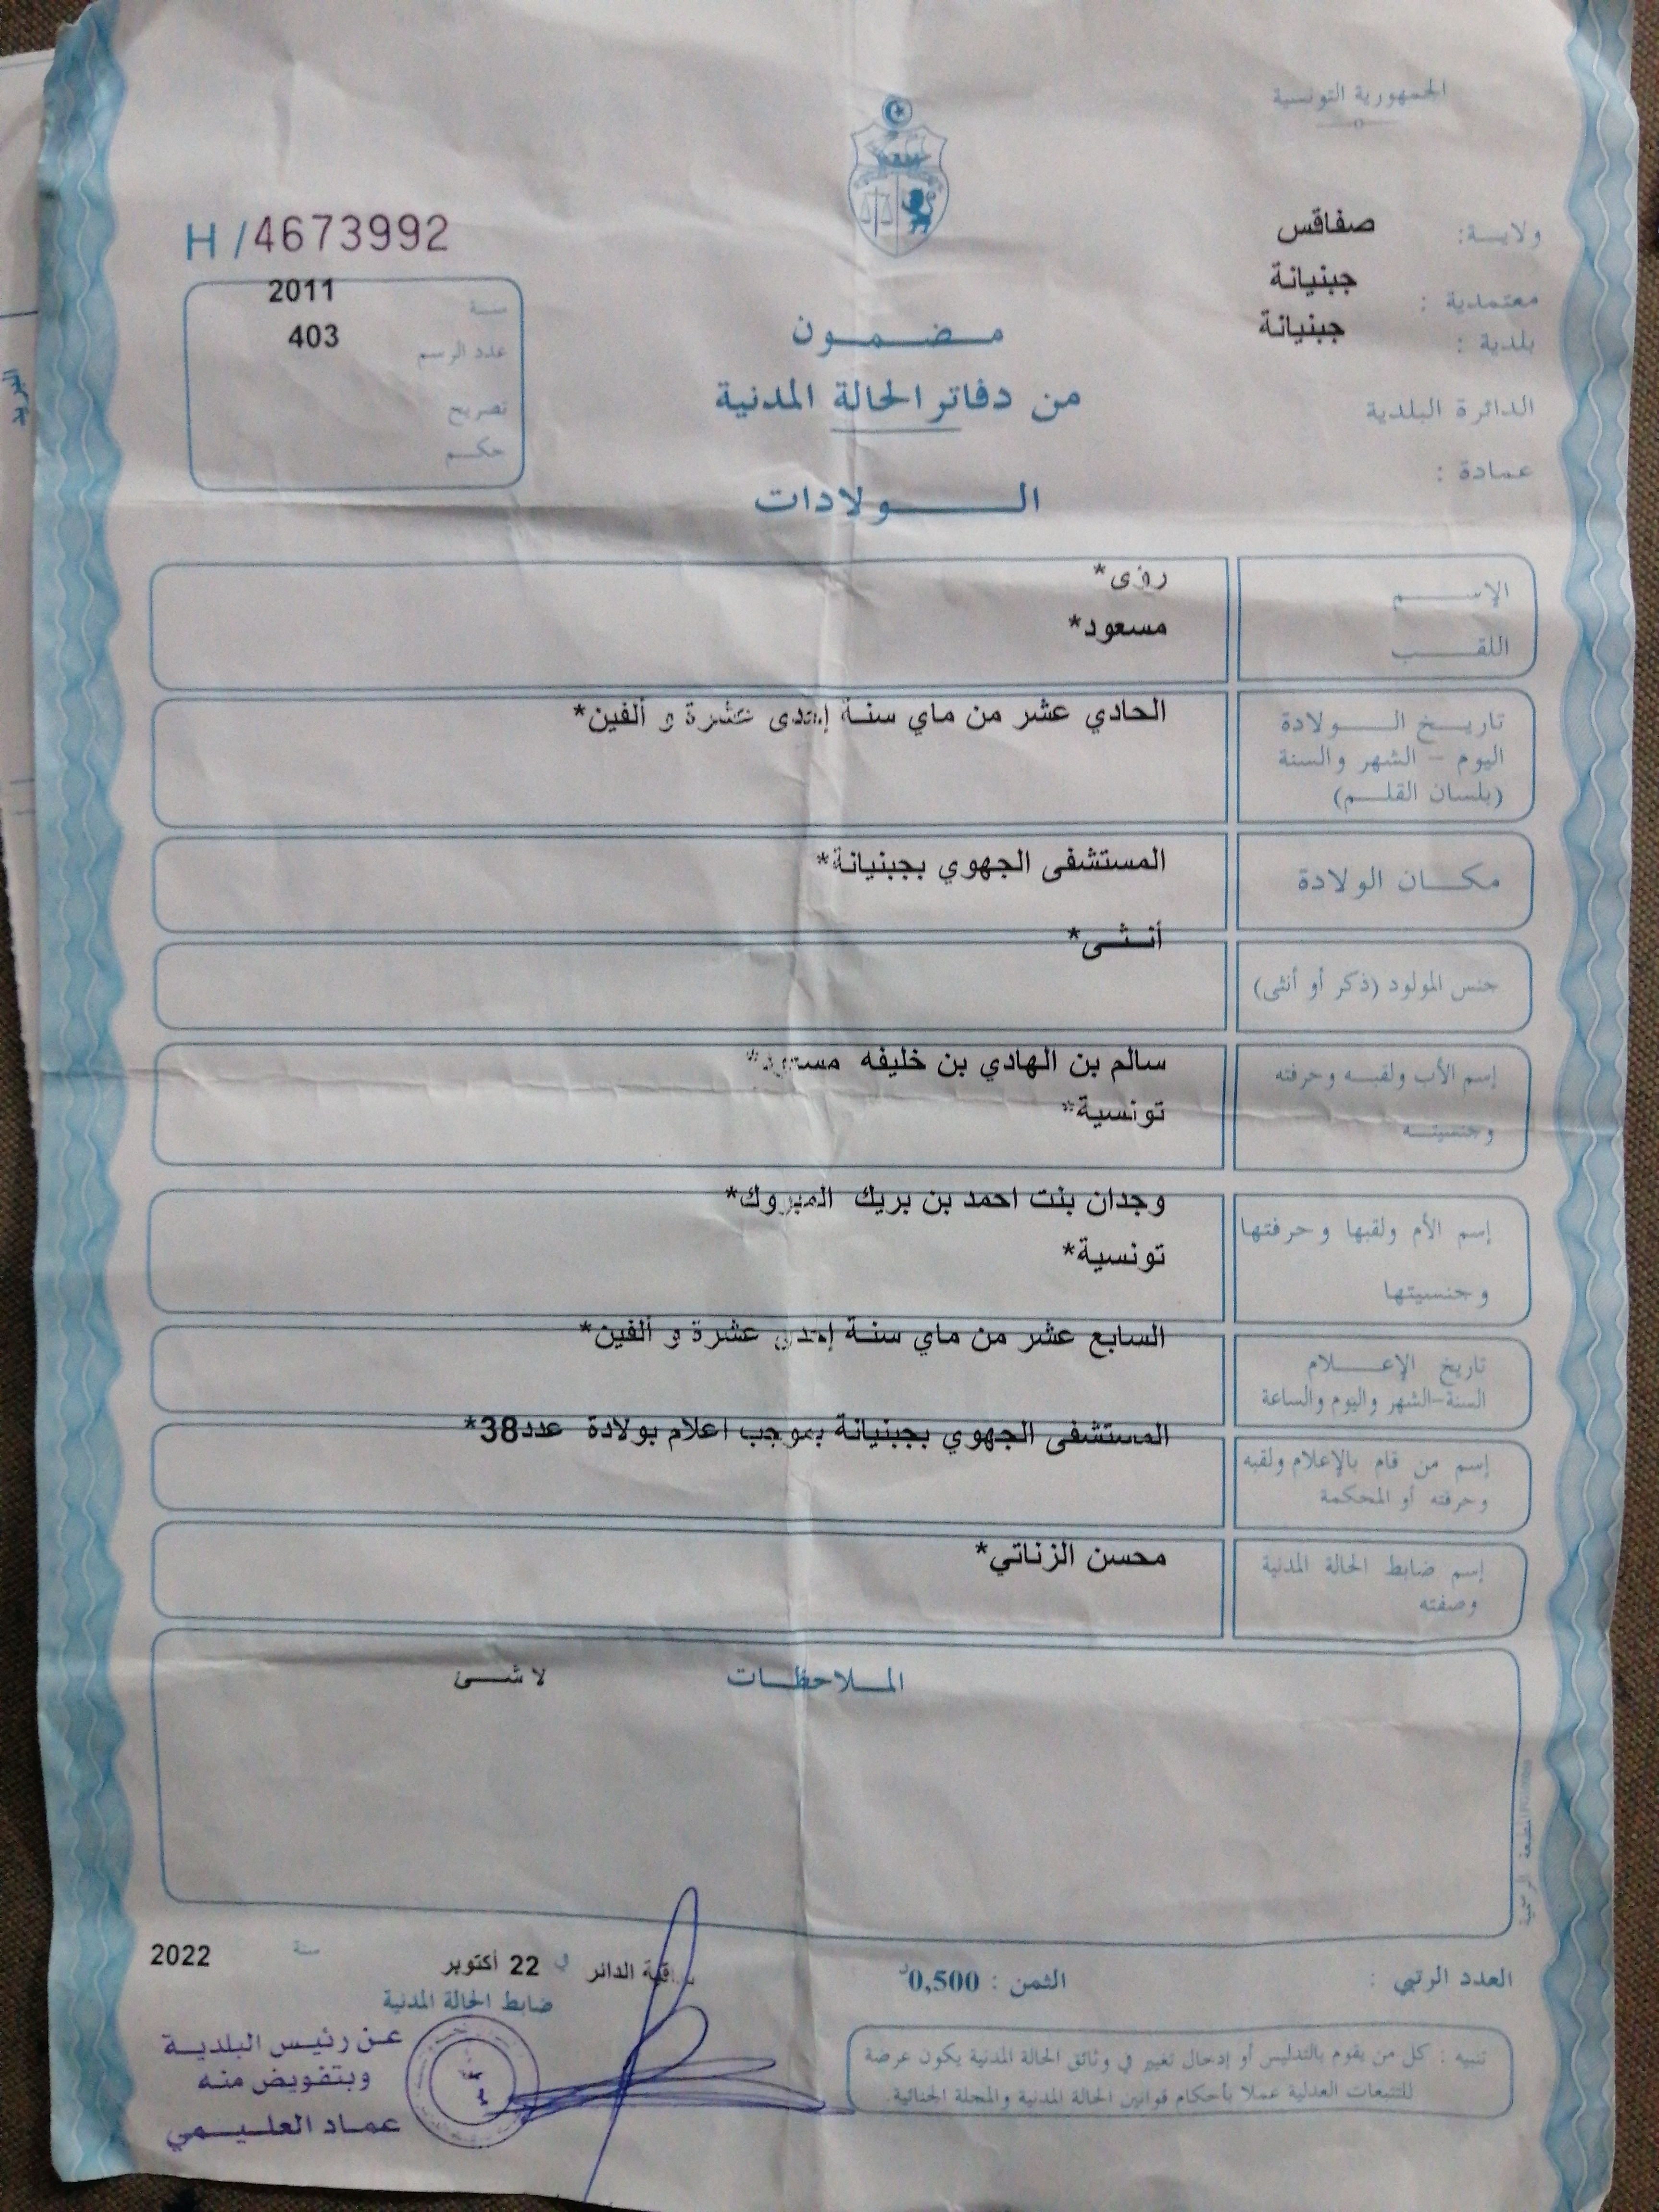 الجمهورية التونسية
ولايــة: صفاقس
معتمدية : جبنيانة
بلدية : جبنيانة
الدائرة البلدية
عمادة :
H/4673992
سنة 2011
عدد الرسم 403
تصريح
حكم
مضمون
من دفاتر الحالة المدنية
الولادات
الإسم رؤى*
اللقب مسعود*
تاريخ الولادة
اليوم - الشهر والسنة
(بلسان القلم)
الحادي عشر من ماي سنة إحدى عشرة و ألفين*
مكان الولادة
المستشفى الجهوي بجبنيانة*
جنس المولود (ذكر أو أنثى)
أنثى*
إسم الأب ولقبه وحرفته
وجنسيته
سالم بن الهادي بن خليفه مسعود*
تونسية*
إسم الأم ولقبها وحرفتها
وجنسيتها
وجدان بنت احمد بن بريك المبروك*
تونسية*
تاريخ الإعلام
السنة-الشهر واليوم والساعة
السابع عشر من ماي سنة إحدى عشرة و ألفين*
إسم من قام بالإعلام ولقبه
وحرفته أو المحكمة
المستشفى الجهوي بجبنيانة بموجب اعلام بولادة عدد38*
إسم ضابط الحالة المدنية
وصفته
محسن الزناتي*
الملاحظات لا شئ
العدد الرتبي :
الثمن : 0,500د
الدائر في 22 أكتوبر سنة 2022
ضابط الحالة المدنية
عن رئيس البلدية
وبتفويض منه
عماد العليمي
تنبيه : كل من يقوم بالتدليس أو إدخال تغيير في وثائق الحالة المدنية يكون عرضة
للتتبعات العدلية عملا بأحكام قوانين الحالة المدنية والمجلة الجنائية.